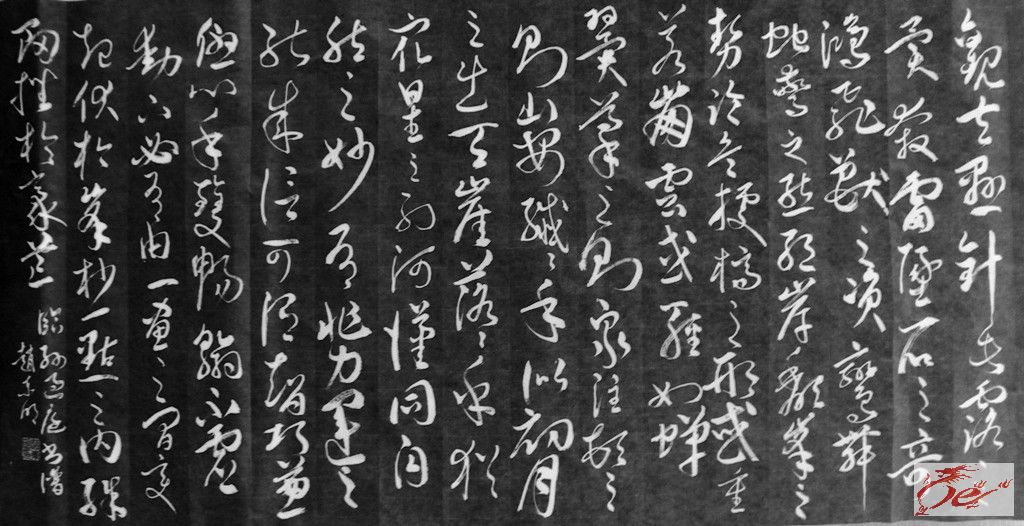 觀夫懸針垂露之
異奔雷墜石之奇
鴻飛獸之資鸞舞
蛇驚之態絕岸頹峯之
勢臨危據槁之形或重
若崩雲或輕如蟬
翼導之則泉注頓之
則山安纖々乎似初月
之出天崖落々乎猶
衆星之列河漢同自
然之妙有非力運之
能成信可謂智巧兼
優心手雙暢翰不虛
動下必有由一畫之間變
起伏於峯杪一點之內殊
衄挫於毫芒
臨孫過庭書譜